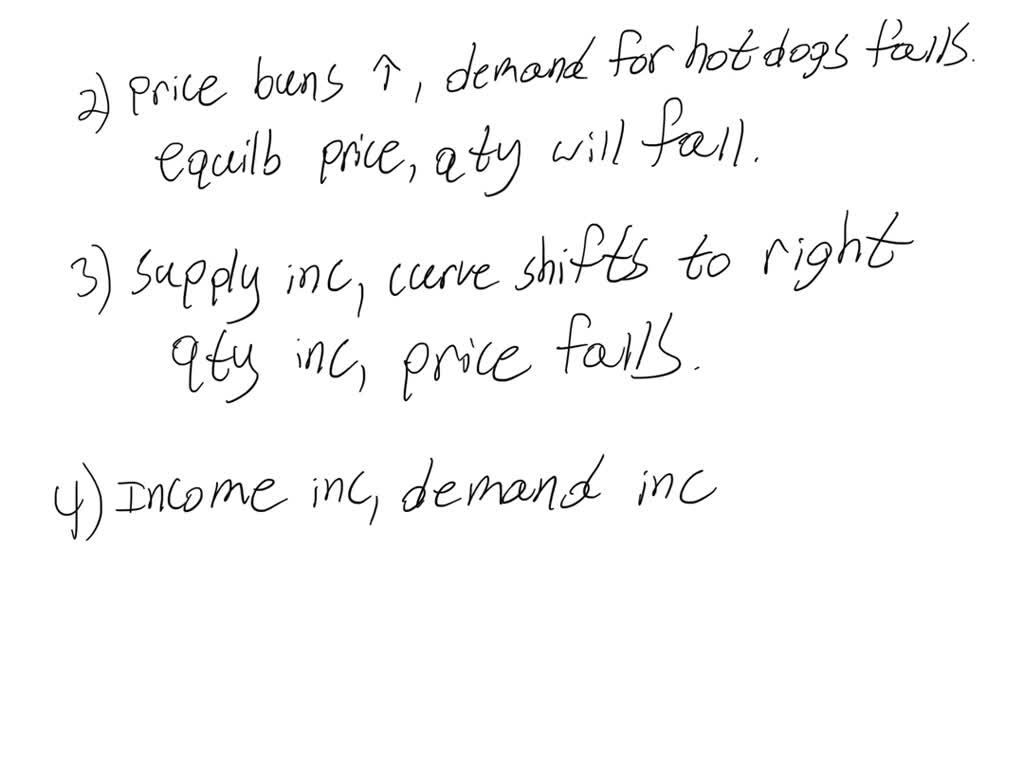 2) price buns ↑, demand for hotdogs falls.
equilb price, qty will fall.
3) supply inc, curve shifts to right
qty inc, price falls.
4) Income inc, demand inc